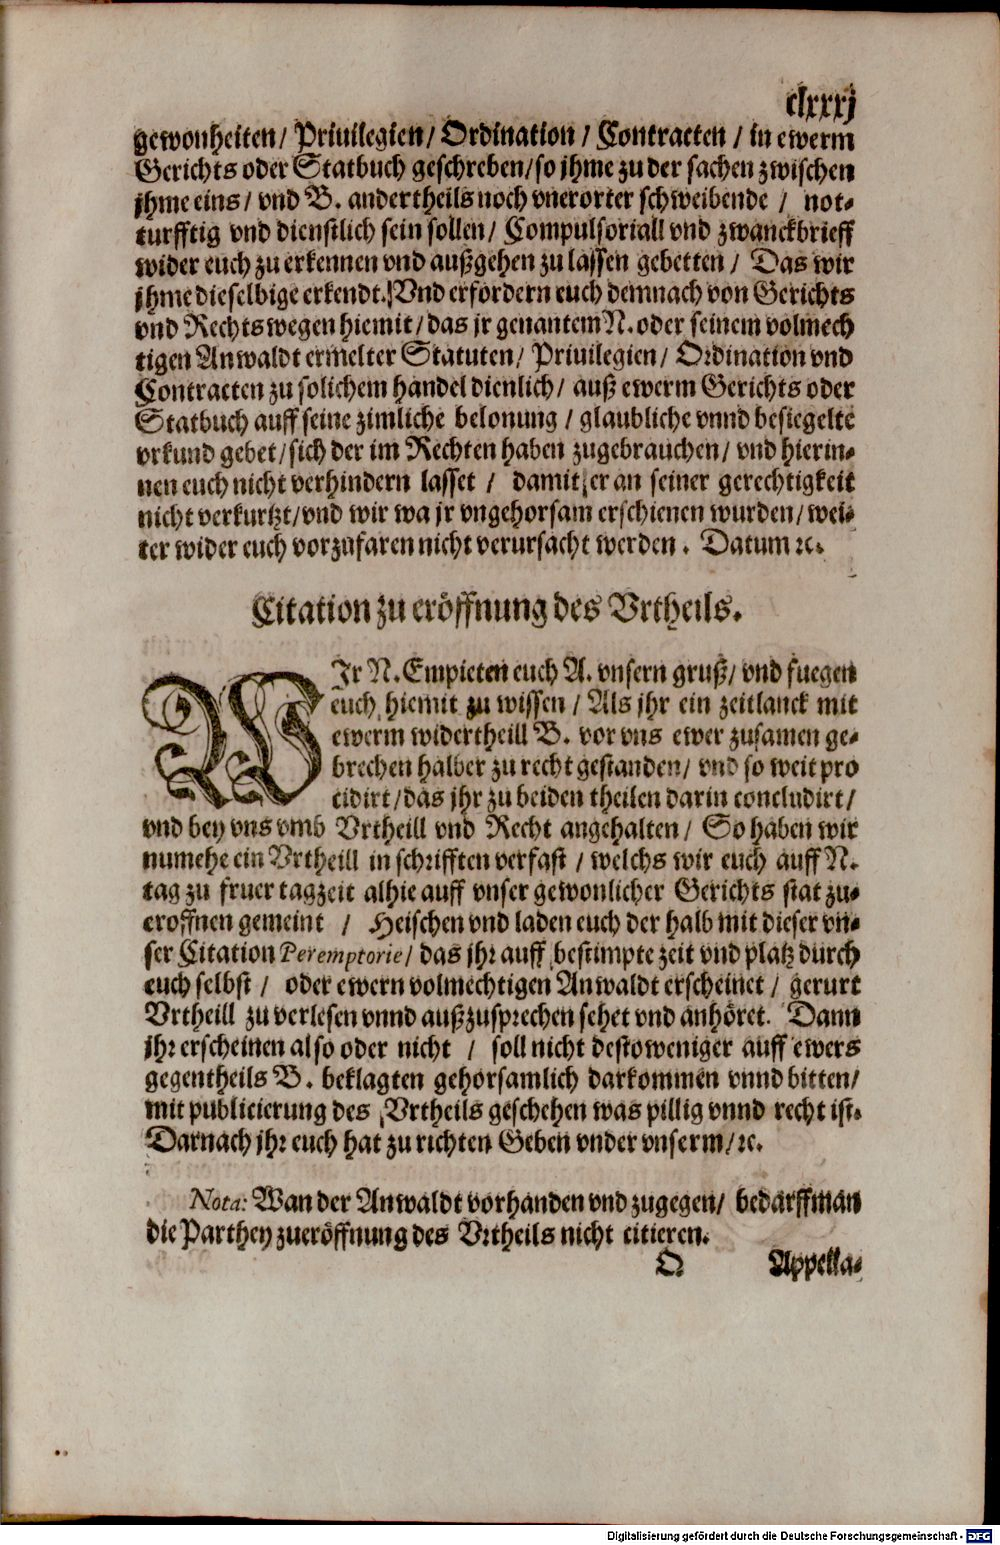 clxxxj
gewonheiten/ Priuilegien/ Ordination / Contracten / in ewerm
Gerichts oder Statbuch geschreben/so jhme zu der sachen zwischen
jhme eins / vnd B. andertheils noch vnerorter schweibende / not-
turfftig vnd dienstlich sein sollen/ Compulsoriall vnd zwanckbrieff
wider euch zu erkennen vnd außgehen zu lassen gebetten / Das wir
jhme dieselbige erkendt. Vnd erfordern euch demnach von Gerichts
vnd Rechts wegen hiemit/das jr genantem N. oder seinem volmech
tigen Anwaldt ermelter Statuten/ Priuilegien/ Ordination vnd
Contracten zu solichem handel dienlich/ auß ewerm Gerichts oder
Statbuch auff seine zimliche belonung / glaubliche vnnd besiegelte
vrkund gebet/sich der im Rechten haben zugebrauchen/ vnd hierin-
nen euch nicht verhindern lasset / damit er an seiner gerechtigkeit
nicht verkurtzt/vnd wir wa jr vngehorsam erschienen wurden/ wei-
ter wider euch vorzufaren nicht verursacht werden. Datum ꝛc.
Citation zu eröffnung des Vrtheils.
WJr N. Empieten euch A. vnsern gruß/ vnd fuegen
euch hiemit zu wissen / Als jhr ein zeitlanck mit
ewerm widertheill B. vor vns ewer zusamen ge-
brechen halber zu recht gestanden/ vnd so weit pro
cidirt/das jhr zu beiden theilen darin concludirt/
vnd bey vns vmb Vrtheill vnd Recht angehalten/ So haben wir
numehe ein Vrtheill in schrifften verfast / welchs wir euch auff N.
tag zu fruer tagzeit alhie auff vnser gewonlicher Gerichts stat zu-
eroffnen gemeint / Heischen vnd laden euch der halb mit dieser vn-
ser Citation Peremptorie/ das jhr auff bestimpte zeit vnd platz durch
euch selbst / oder ewern volmechtigen Anwaldt erscheinet / gerurt
Vrtheill zu verlesen vnnd außzusprechen sehet vnd anhöret. Dann
jhr erscheinen also oder nicht / soll nicht destoweniger auff ewers
gegentheils B. beklagten gehorsamlich darkommen vnnd bitten/
mit publicierung des Vrtheils geschehen was pillig vnnd recht ist.
Darnach jhr euch hat zu richten Geben vnder vnserm/ꝛc.
Nota: Wan der Anwaldt vorhanden vnd zugegen/ bedarff man
die Parthey zueröffnung des Vrtheils nicht citieren.
Q Appella-
Digitalisierung gefördert durch die Deutsche Forschungsgemeinschaft - DFG